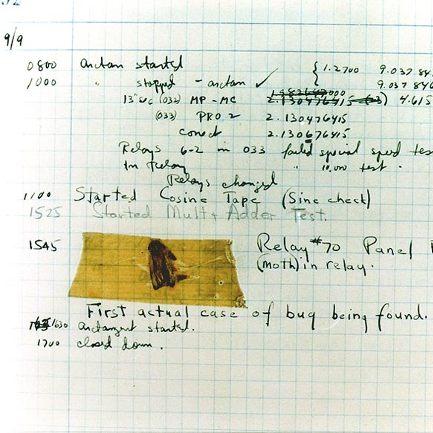 9/9
0800 Arctan started { 1.2700 9.037 84
1000 " stopped - arctan ✓ 9.037 846
13" uc (033) MP-MC 2.130476415 4.615
(033) PRO 2 2.130476415
conect 2.130676415
Relays 6-2 in 033 failed special sped tes
In Relay " 10,000 test .
Relays changed
1100 Started Cosine Tape (Sine check)
1525 Started Mult + Adder Test.
1545 Relay #70 Panel
(moth) in relay.
First actual case of bug being found.
1630 arctangent started.
1700 closed down.